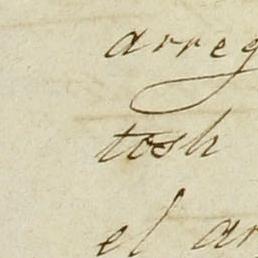 arreg
tosh
el ar